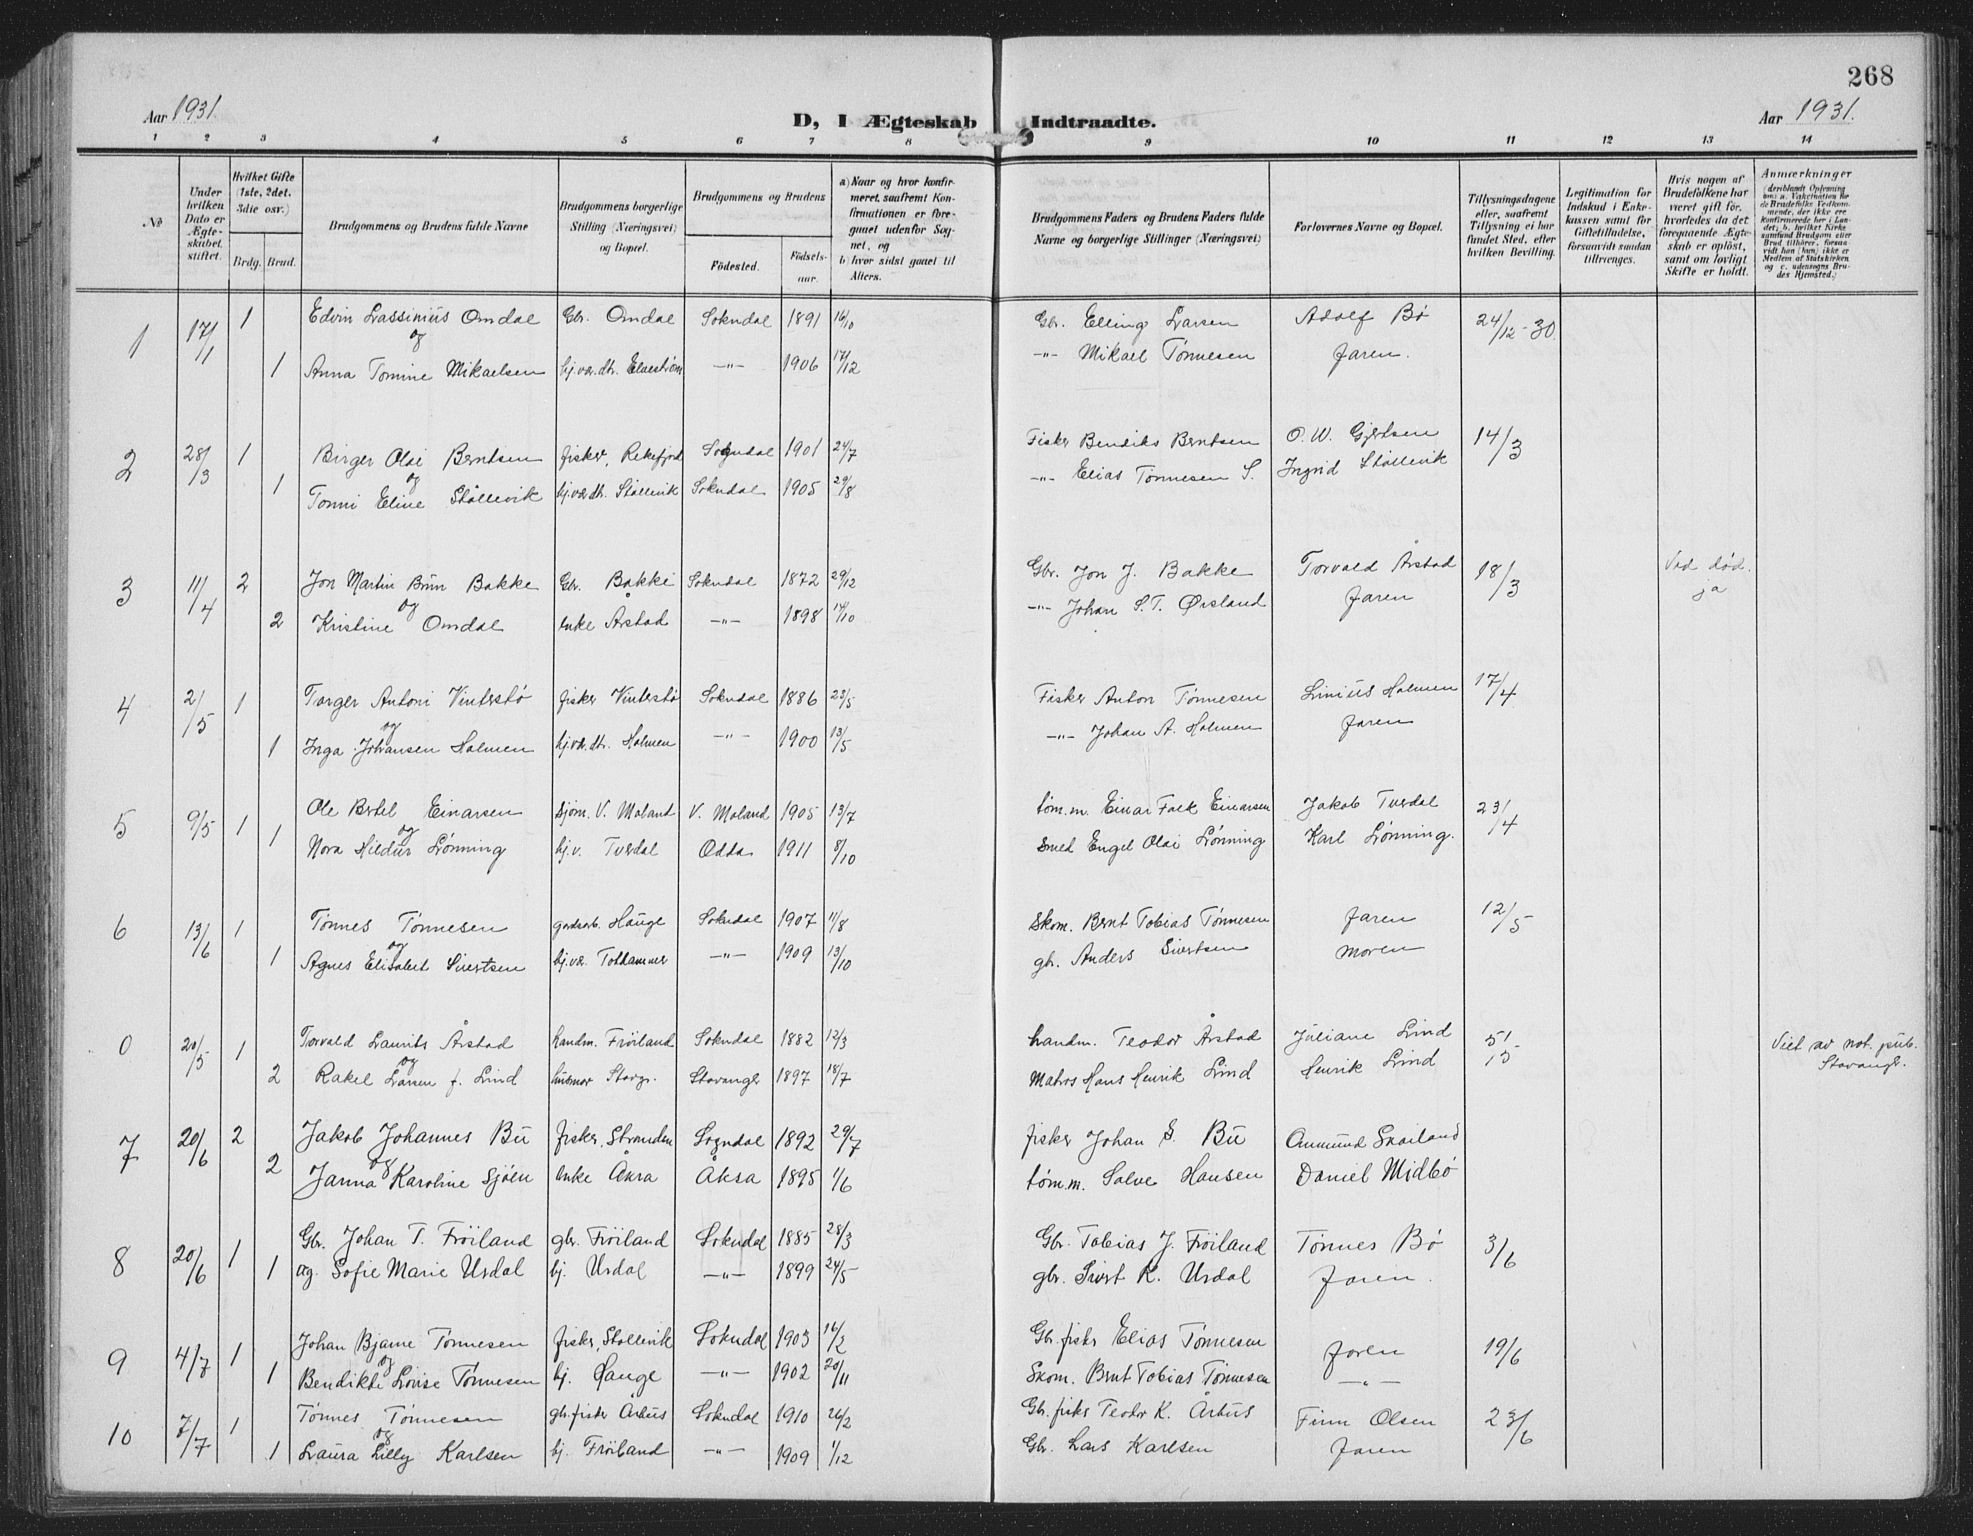 268
Aar 1931.
D, I Ægteskab Indtraadte.
Aar 1931.
1 2 3 4 5 6 7 8 9 10 11 12 13 14
No
Under hvilken Dato er Ægteskabet stiftet.
Hvilket Gifte (1ste, 2det, 3die osv.)
Brdg. Brud.
Brudgommens og Brudens fulde Navne
Brudgommens borgerlige Stilling (Næringsvei) og Bopæl.
Brudgommens og Brudens
Fødested.
Fødselsaar.
a) Naar og hvor konfirmeret, saafremt Konfirmationen er foregaaet udenfor Sognet, og
b) hvor sidst gaaet til Alters.
Brudgommens Faders og Brudens Faders fulde Navne og borgerlige Stillinger (Næringsvei)
Forlovernes Navne og Bopæl.
Tillysningsdagene eller, saafremt Tillysning ei har fundet Sted, efter hvilken Bevilling.
Legitimation for Indskud i Enkekassen samt for Giftetilladelse, forsaavidt saadan tiltrænges.
Hvis nogen af Brudefolkene har været gift før, hvorledes da det foregaaende Ægteskab er opløst, samt om lovligt Skifte er holdt.
Anmærkninger
1 17/1 1 Edvin Lassinius Omdal Gbr. Omdal Sokndal 1891 16/10 Gbr. Elling Larsen Adolf Bø 24/12-30
og
1 Anna Tomine Mikaelsen hj.vær.dtr. Elvestrøm -"- 1906 17/12 -"- Mikael Tønnesen Faren.
2 28/3 1 Birger Olai Berntsen fisker, Rekefjord Sogndal 1901 24/7 Fisker Bendiks Berntsen O. W. Gjertsen 14/3
og
1 Tonni Eline Stållevik hj.vær.dtr. Stållevik Sokndal 1905 29/8 -"- Elias Tønnesen S. Ingrid Stållevik
3 11/4 2 Jon Martin Brun Bakke Gbr. Bakke Sokndal 1872 29/12 Gbr. Jon J. Bakke Torvald Årstad 18/3 Ved død.
og
2 Kristine Omdal enke Årstad -"- 1898 14/10 -"- Johan S.T. Ørsland Faren ja
4 2/5 1 Torger Antoni Vinterstø fisker Vinterstø Sokndal 1886 23/5 Fisker Anton Tønnesen Linius Holmen 17/4
og
1 Inga Johansen Holmen hj.vær.dtr. Holmen -"- 1900 13/5 -"- Johan A. Holmen Faren
5 9/5 1 Ole Bertel Einarsen sjøm. V. Moland V. Moland 1905 13/7 tøm.m. Einar Falk Einarsen Jakob Tverdal 23/4
og
1 Nora Hildur Lønning hj.v. Tverdal Odda 1911 8/10 Smed Engel Olai Lønning Karl Lønning.
6 13/6 1 Tønnes Tønnesen gardsarb. Hauge Sokndal 1907 11/8 Skom. Bernt Tobias Tønnesen Faren 12/5
og
1 Agnes Elisabet Sivertsen hj.vær. Tothammer -"- 1909 13/10 gbr. Anders Sivertsen moren
0 20/5 1 Torvald Laurits Årstad handm. Frøiland Sokndal 1882 12/3 handm. Teodor Årstad Juliane Lind 5/5 Viet av not. pub.
og
2 Rakel Larsen f. Lind husmor Stavgr. Stavanger 1897 18/7 Matros Hans Henrik Lind Henrik Lind Stavangr.
7 20/6 2 Jakob Johannes Bu fisker, Stranden Sogndal 1892 29/7 fisker Johan S. Bu Ommund Skoiland
og
2 Janna Karoline Sjøen enke Åkra Åkra 1895 1/6 tøm.m. Salve Hansen Daniel Midbø
8 20/6 1 Gbr. Johan T. Frøiland gbr. Frøiland Sokndal 1885 28/3 Gbr. Tobias J. Frøiland Tønnes Bø 3/6
1 og. Sofie Marie Urdal hj. Urdal -"- 1899 24/5 gbr. Sivert K. Urdal Faren.
9 4/7 1 Johan Bjarne Tønnesen fisker, Stallevik Sokndal 1903 16/2 Gbr. fisker Elias Tønnesen Faren 19/6
og
1 Bendikte Lovise Tønnesen hj. Hauge -"- 1902 20/11 Skom. Bernt Tobias Tønnesen -"-
10 7/7 1 Tønnes Tønnesen gbr. fisker Årbus Sokndal 1910 26/2 Gbr. fisker Teodor K. Årbus Finn Olsen 23/6
og
1 Laura Lilly Karlsen hj. Frøiland -"- 1909 1/12 Gbr. Lars Karlsen Faren